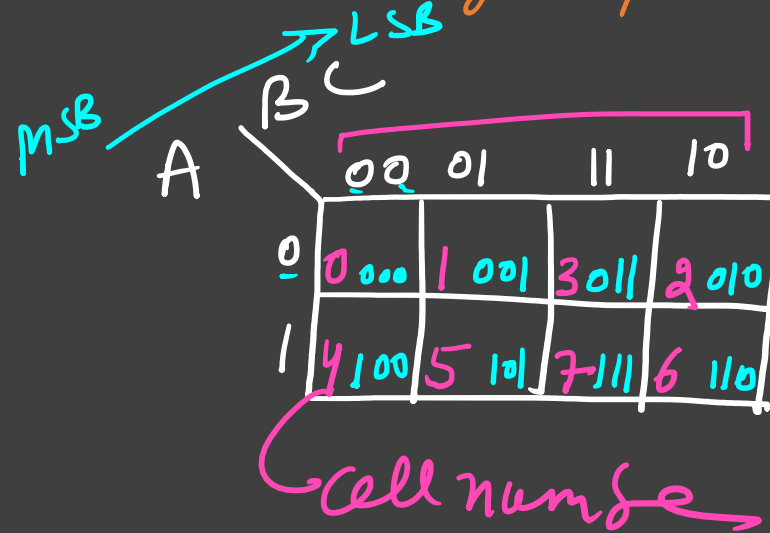 LSB
MSB
BC
A
00 01 11 10
0 0 000 1 001 3 011 2 010
1 4 100 5 101 7 111 6 110
cell numbe